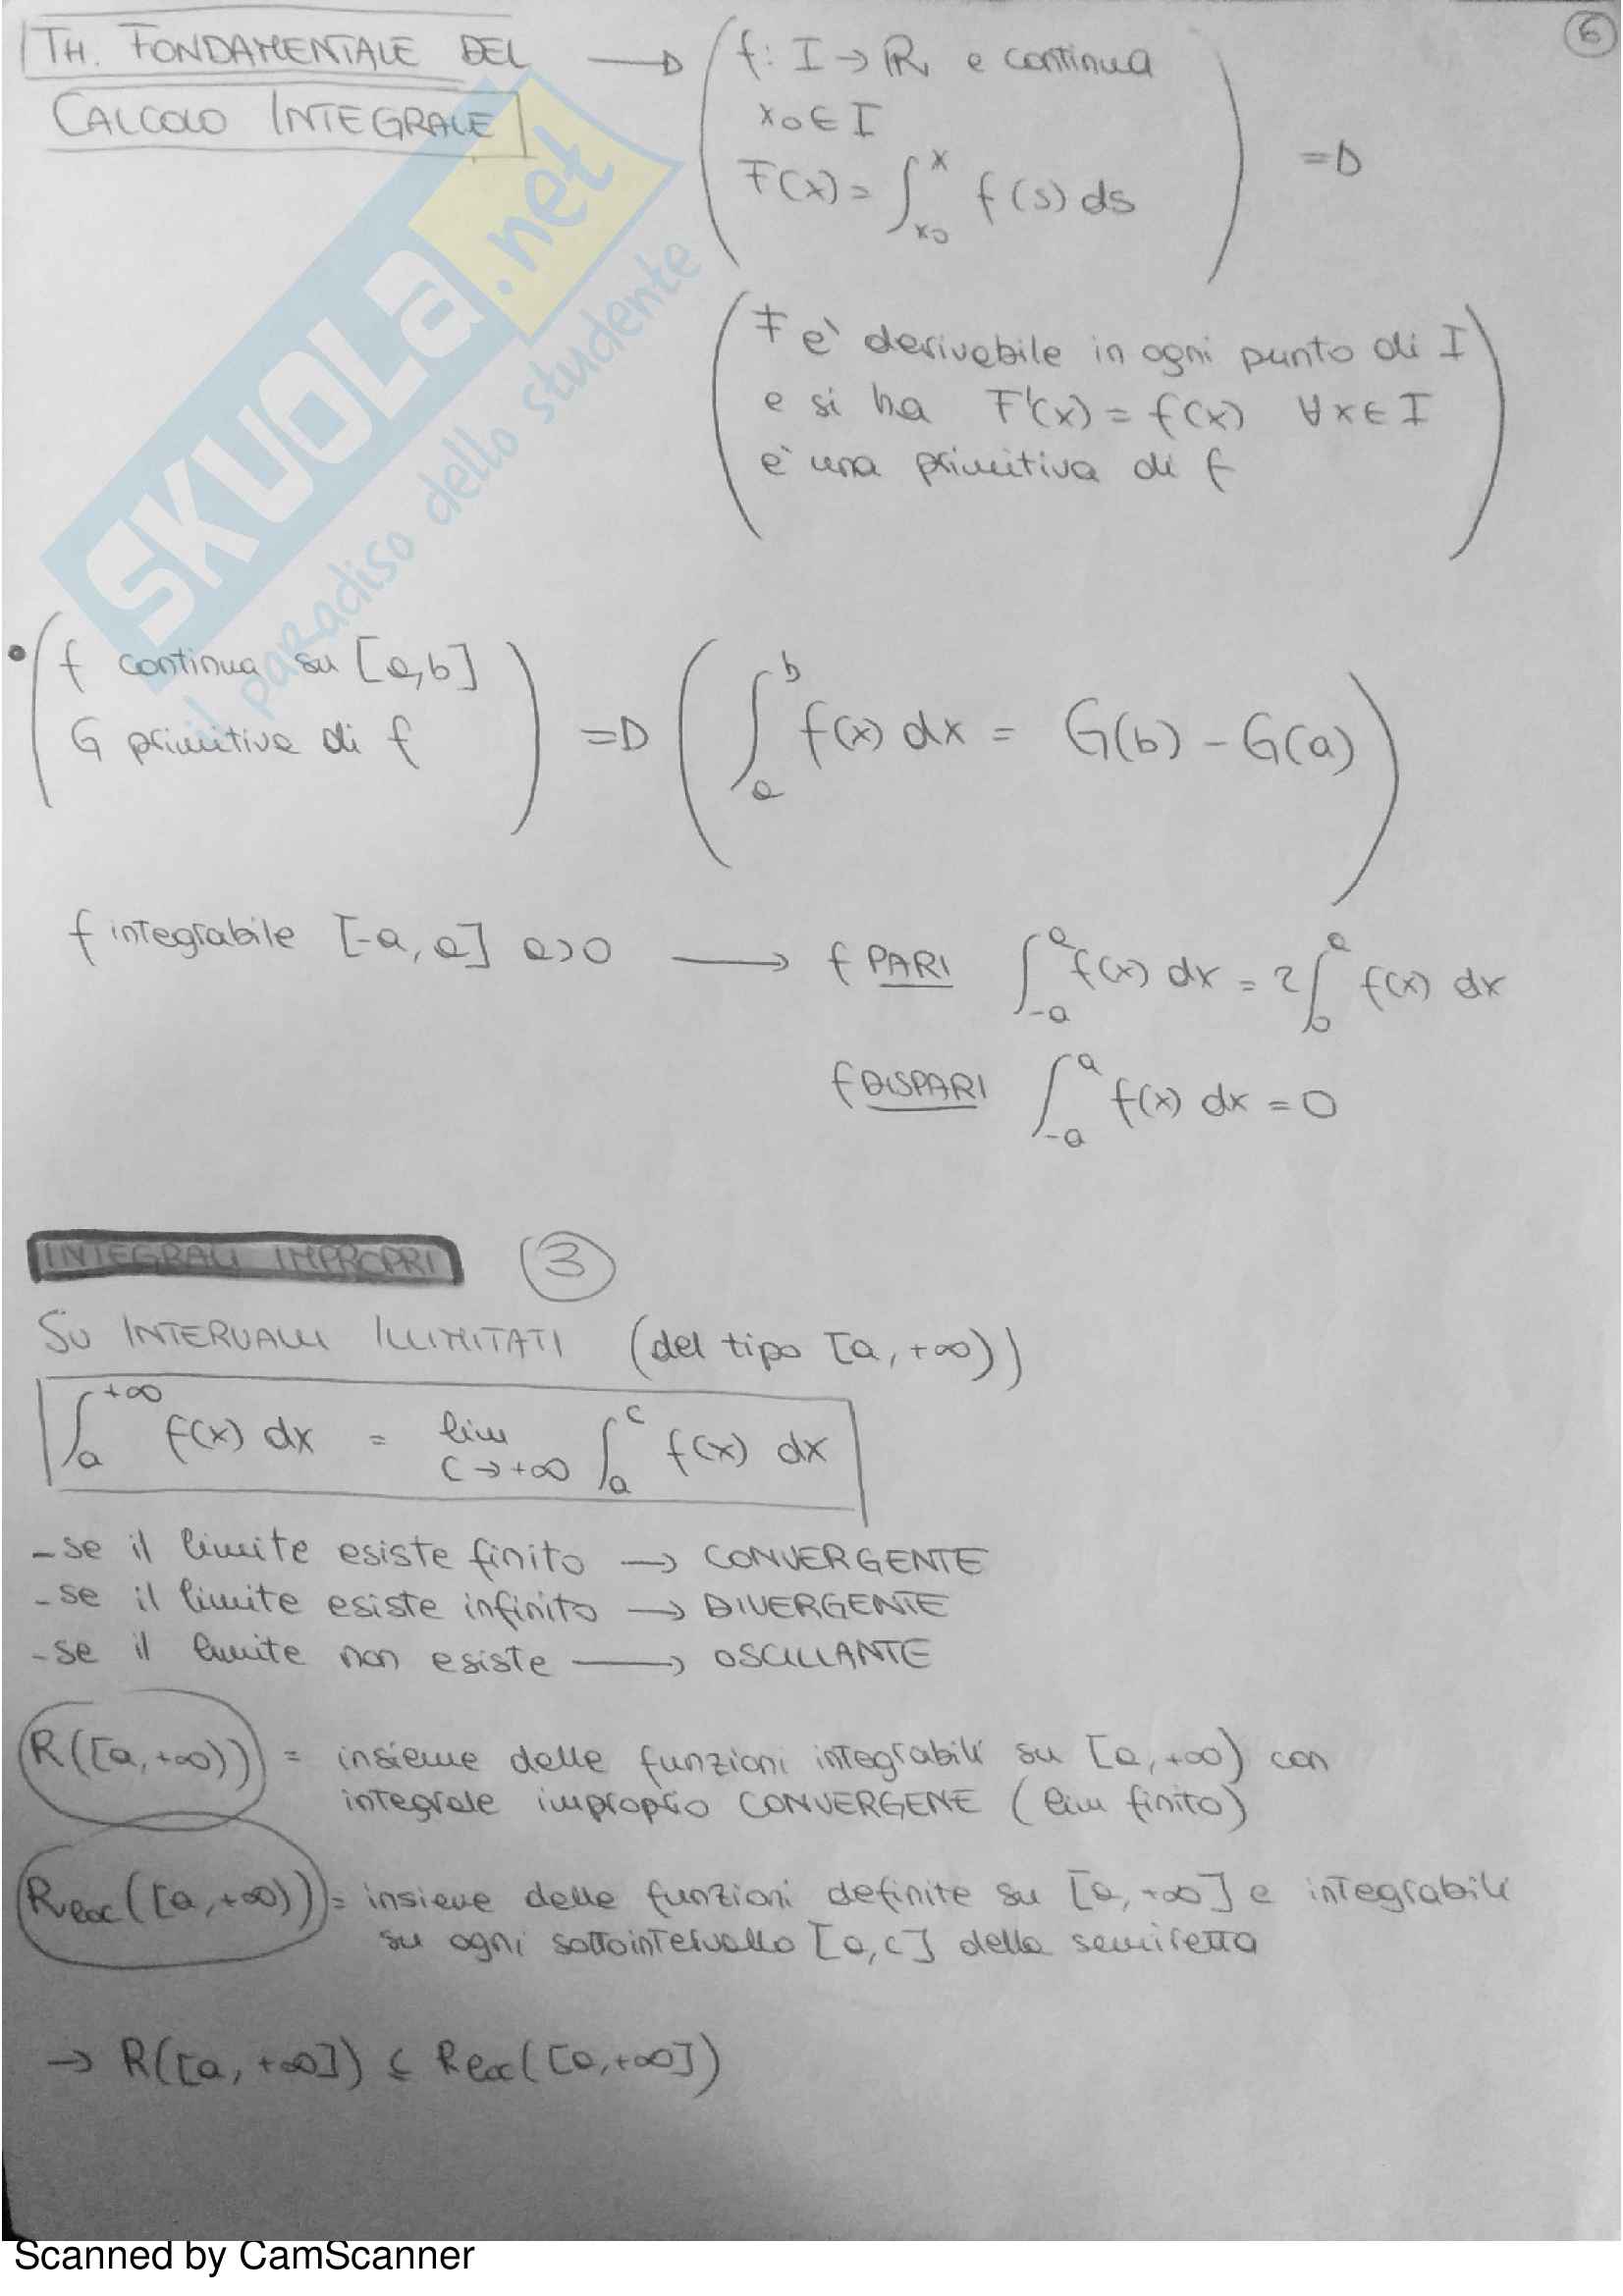 6
TH. FONDAMENTALE DEL CALCOLO INTEGRALE → ( f: I → ℝ e continua
x₀ ∈ I
F(x) = ∫_{x₀}^{x} f(s) ds ) =D
( F e' derivabile in ogni punto di I
e si ha F'(x) = f(x) ∀x ∈ I
e' una primitiva di f )
• ( f continua su [a,b]
G primitiva di f ) =D ( ∫_a^b f(x) dx = G(b) - G(a) )
f integrabile [-a, a] a>0 → f PARI ∫_{-a}^{a} f(x) dx = 2∫_0^a f(x) dx
f DISPARI ∫_{-a}^{a} f(x) dx = 0
INTEGRALI IMPROPRI 3
SU INTERVALLI ILLIMITATI (del tipo [a, +∞))
∫_a^{+∞} f(x) dx = lim_{c→+∞} ∫_a^c f(x) dx
- se il limite esiste finito → CONVERGENTE
- se il limite esiste infinito → DIVERGENTE
- se il limite non esiste → OSCILLANTE
R([a, +∞)) = insieme delle funzioni integrabili su [a, +∞) con
integrale improprio CONVERGENE (lim finito)
Rloc([a, +∞)) = insieme delle funzioni definite su [a, +∞] e integrabili
su ogni sottointervallo [a,c] della semiretta
→ R([a, +∞]) ⊆ Rloc([a, +∞])
SKUOLA.net
il paradiso dello studente
Scanned by CamScanner